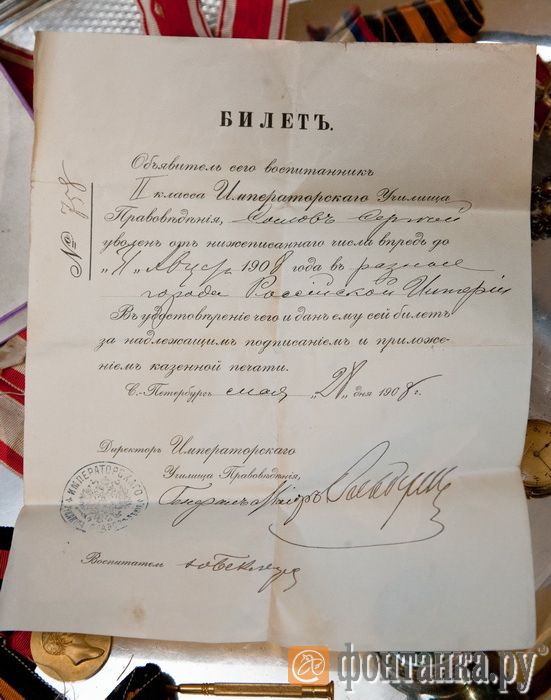 БИЛЕТЪ.
№ 758
Объявитель сего воспитанникъ
II класса Императорскаго Училища
Правовѣдѣнія, Сергѣй
уволенъ отъ нижеписаннаго числа впредь до
1908 года въ разные
города Россійской Имперіи
Въ удостовѣреніе чего и данъ ему сей билетъ
за надлежащимъ подписаніемъ и приложе-
ніемъ казенной печати.
С.-Петербургъ мая „28" дня 1908 г.
Директоръ Императорскаго
Училища Правовѣдѣнія,
Генералъ-Маіоръ
ИМПЕРАТОРСКАГО УЧИЛИЩА ПРАВОВѢДѢНІЯ
Воспитатель
фонтанка.ру